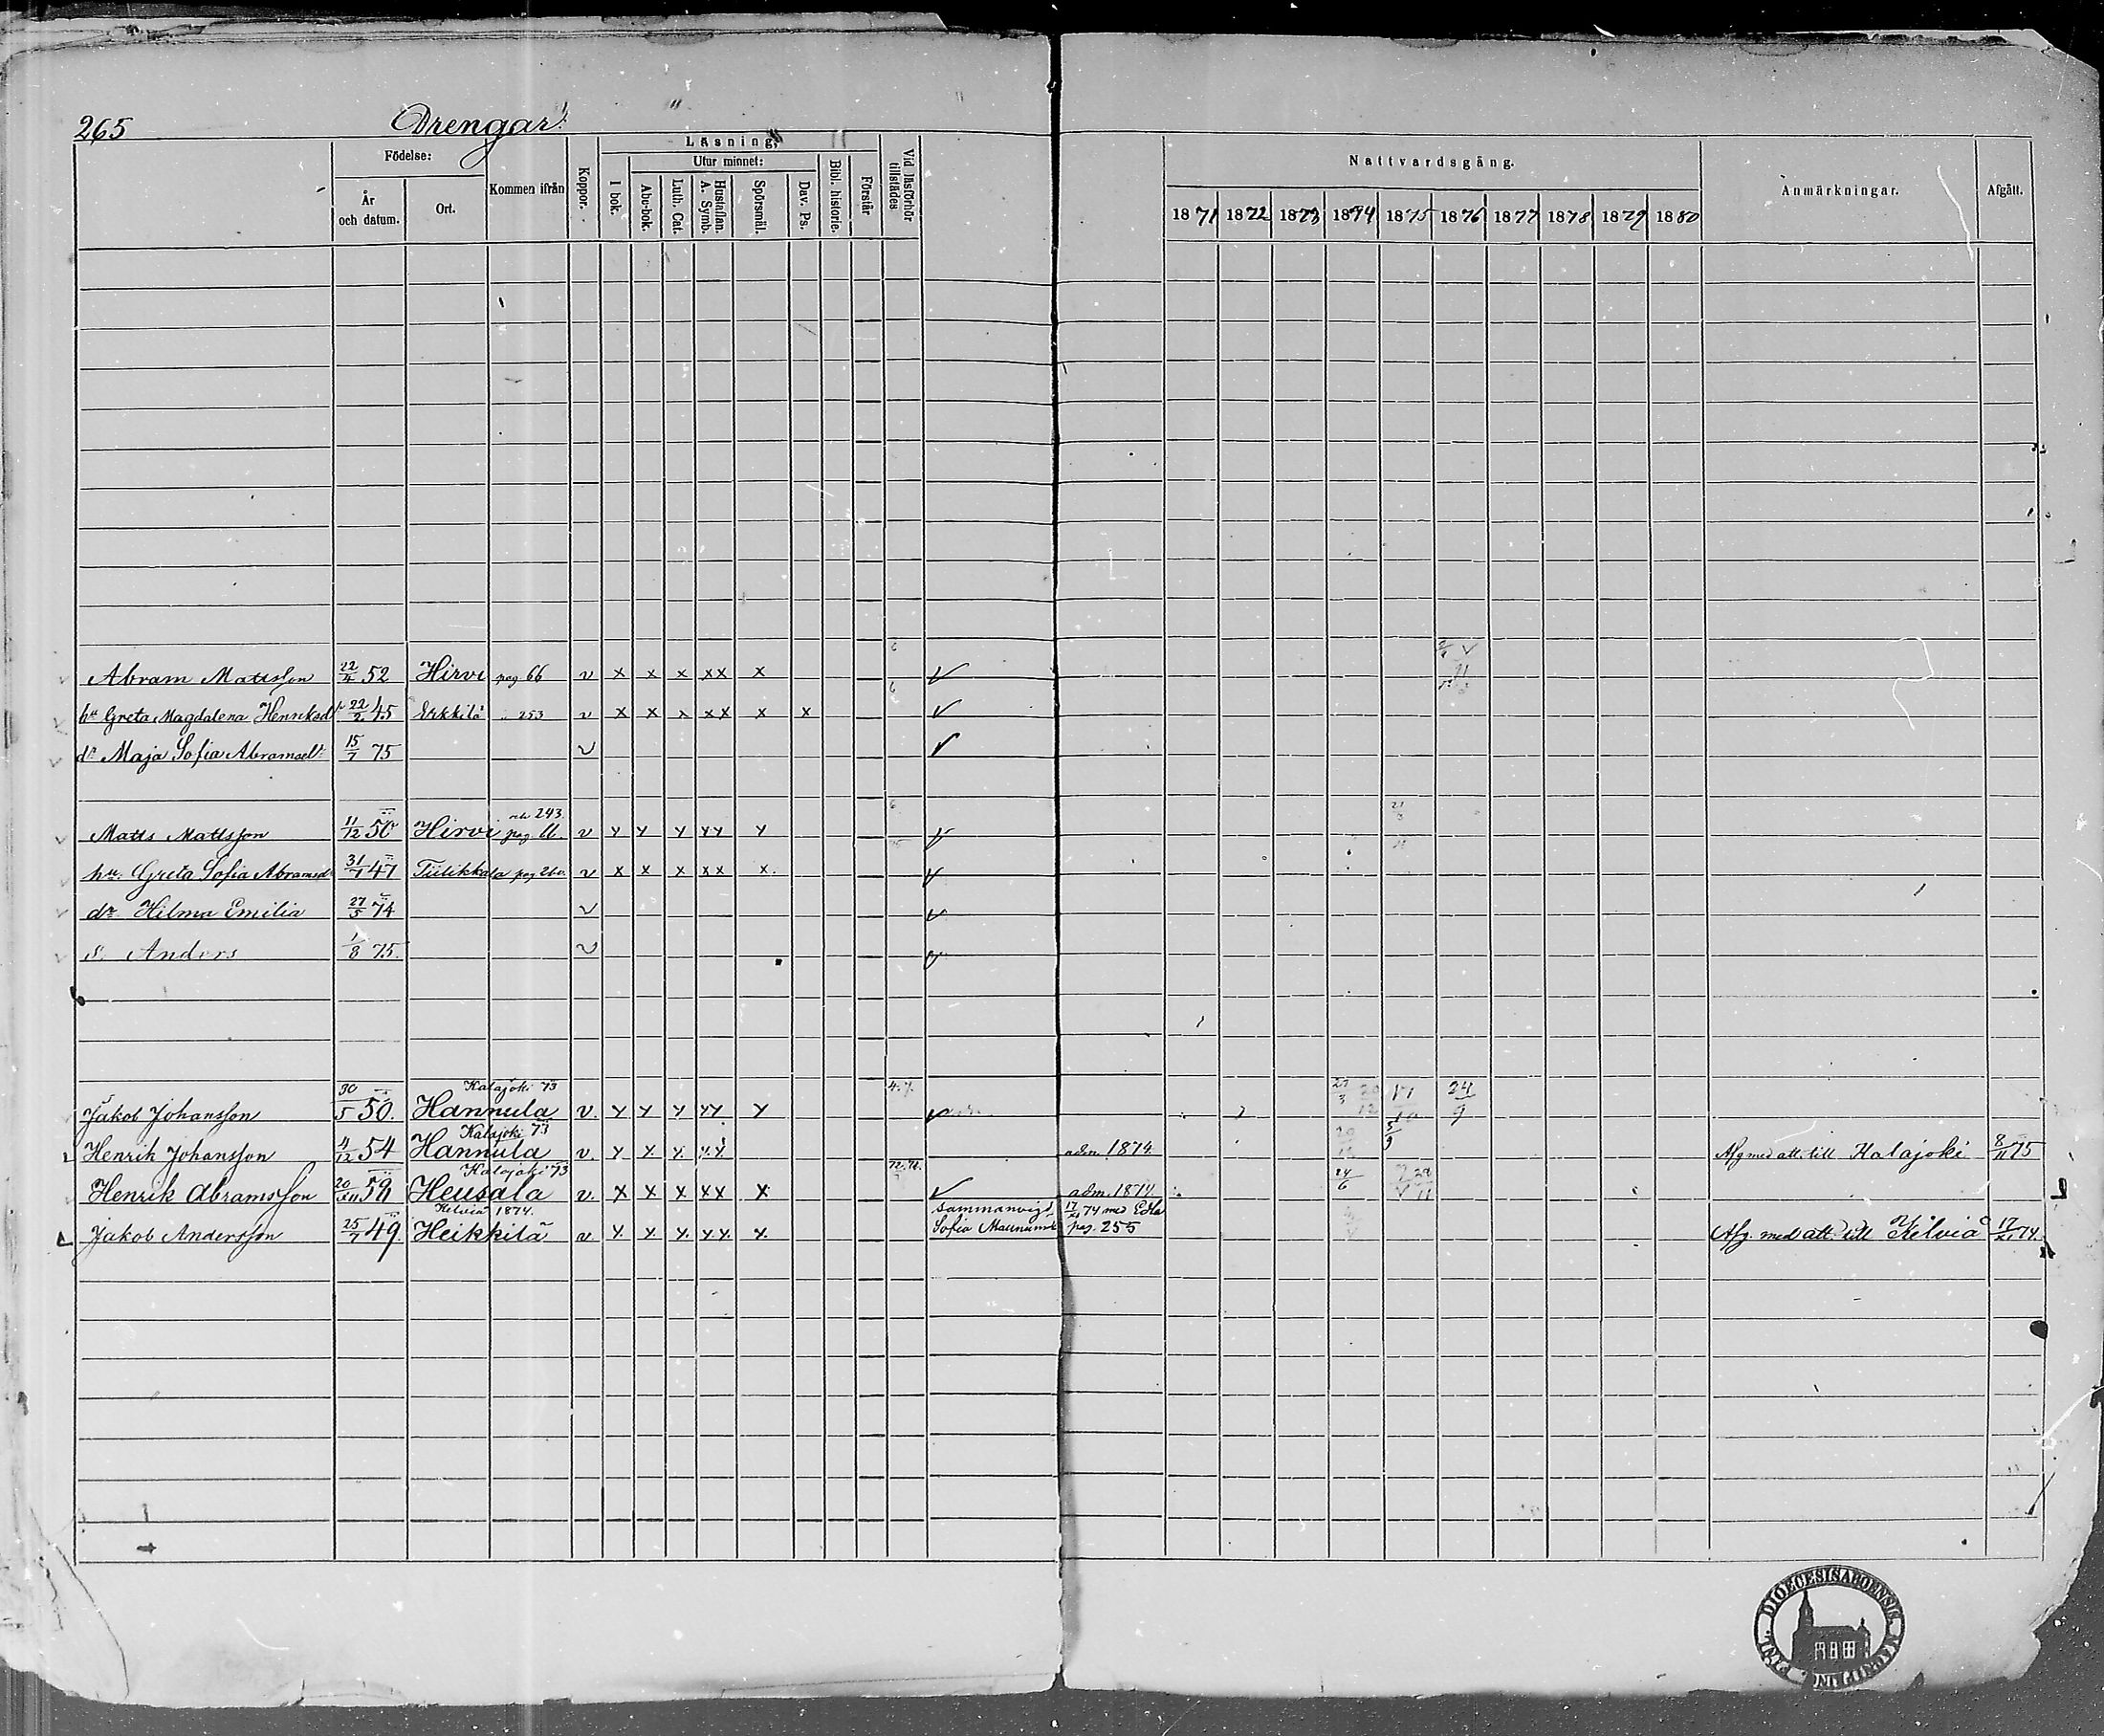 265 Drengar.
Födelse: Kommen ifrån Koppor. Läsning, Vid läsförhör tillstädes Nattvardsgång. Anmärkningar. Afgått.
År och datum. Ort. I bok. Utur minnet: Bibl. historie. Förstår
Abc-bok. Luth. Cat. Hustaflan. A. Symb. Spörsmål. Dav. Ps.
1871 1872 1873 1874 1875 1876 1877 1878 1879 1880
Abram Mattsson 22/4 52 Hirvi pag 66 v x x x xx x
hu Greta Magdalena Henriksdr 22/2 45 Erkkilä " 253 v x x x xx x x
dr Maja Sofia Abramsdr 15/7 75 v
Matts Mattsson 11/12 50 Hirvi pag. 66. v x x x xx x
hu. Greta Sofia Abramsdr 31/1 47 Tiilikkala v x x x xx x.
dr Hilma Emilia 27/5 74 v
s. Anders 1/8 75. v
Kalajoki 73
Jakob Johansson 30/5 50. Hannula v. x x x xx x 24/9
Kalajoki 73
Henrik Johansson 4/12 54 Hannula v. x x x xx adm. 1874 5/9 Afg med att. till Kalajoki 8/11 75
Kalajoki 73
Henrik Abramsson 58 Heusala v. x x x xx x adm. 1874 24/6
Kelviå 1874. sammanvigd 17/XI 74 med Edla
Jakob Andersson 25/7 49 Heikkilä v x x x xx x Sofia pag. 255 Afg. med att. till Kelviå 17/XI 74.
FINL. DIOECESIS ABOENSIS